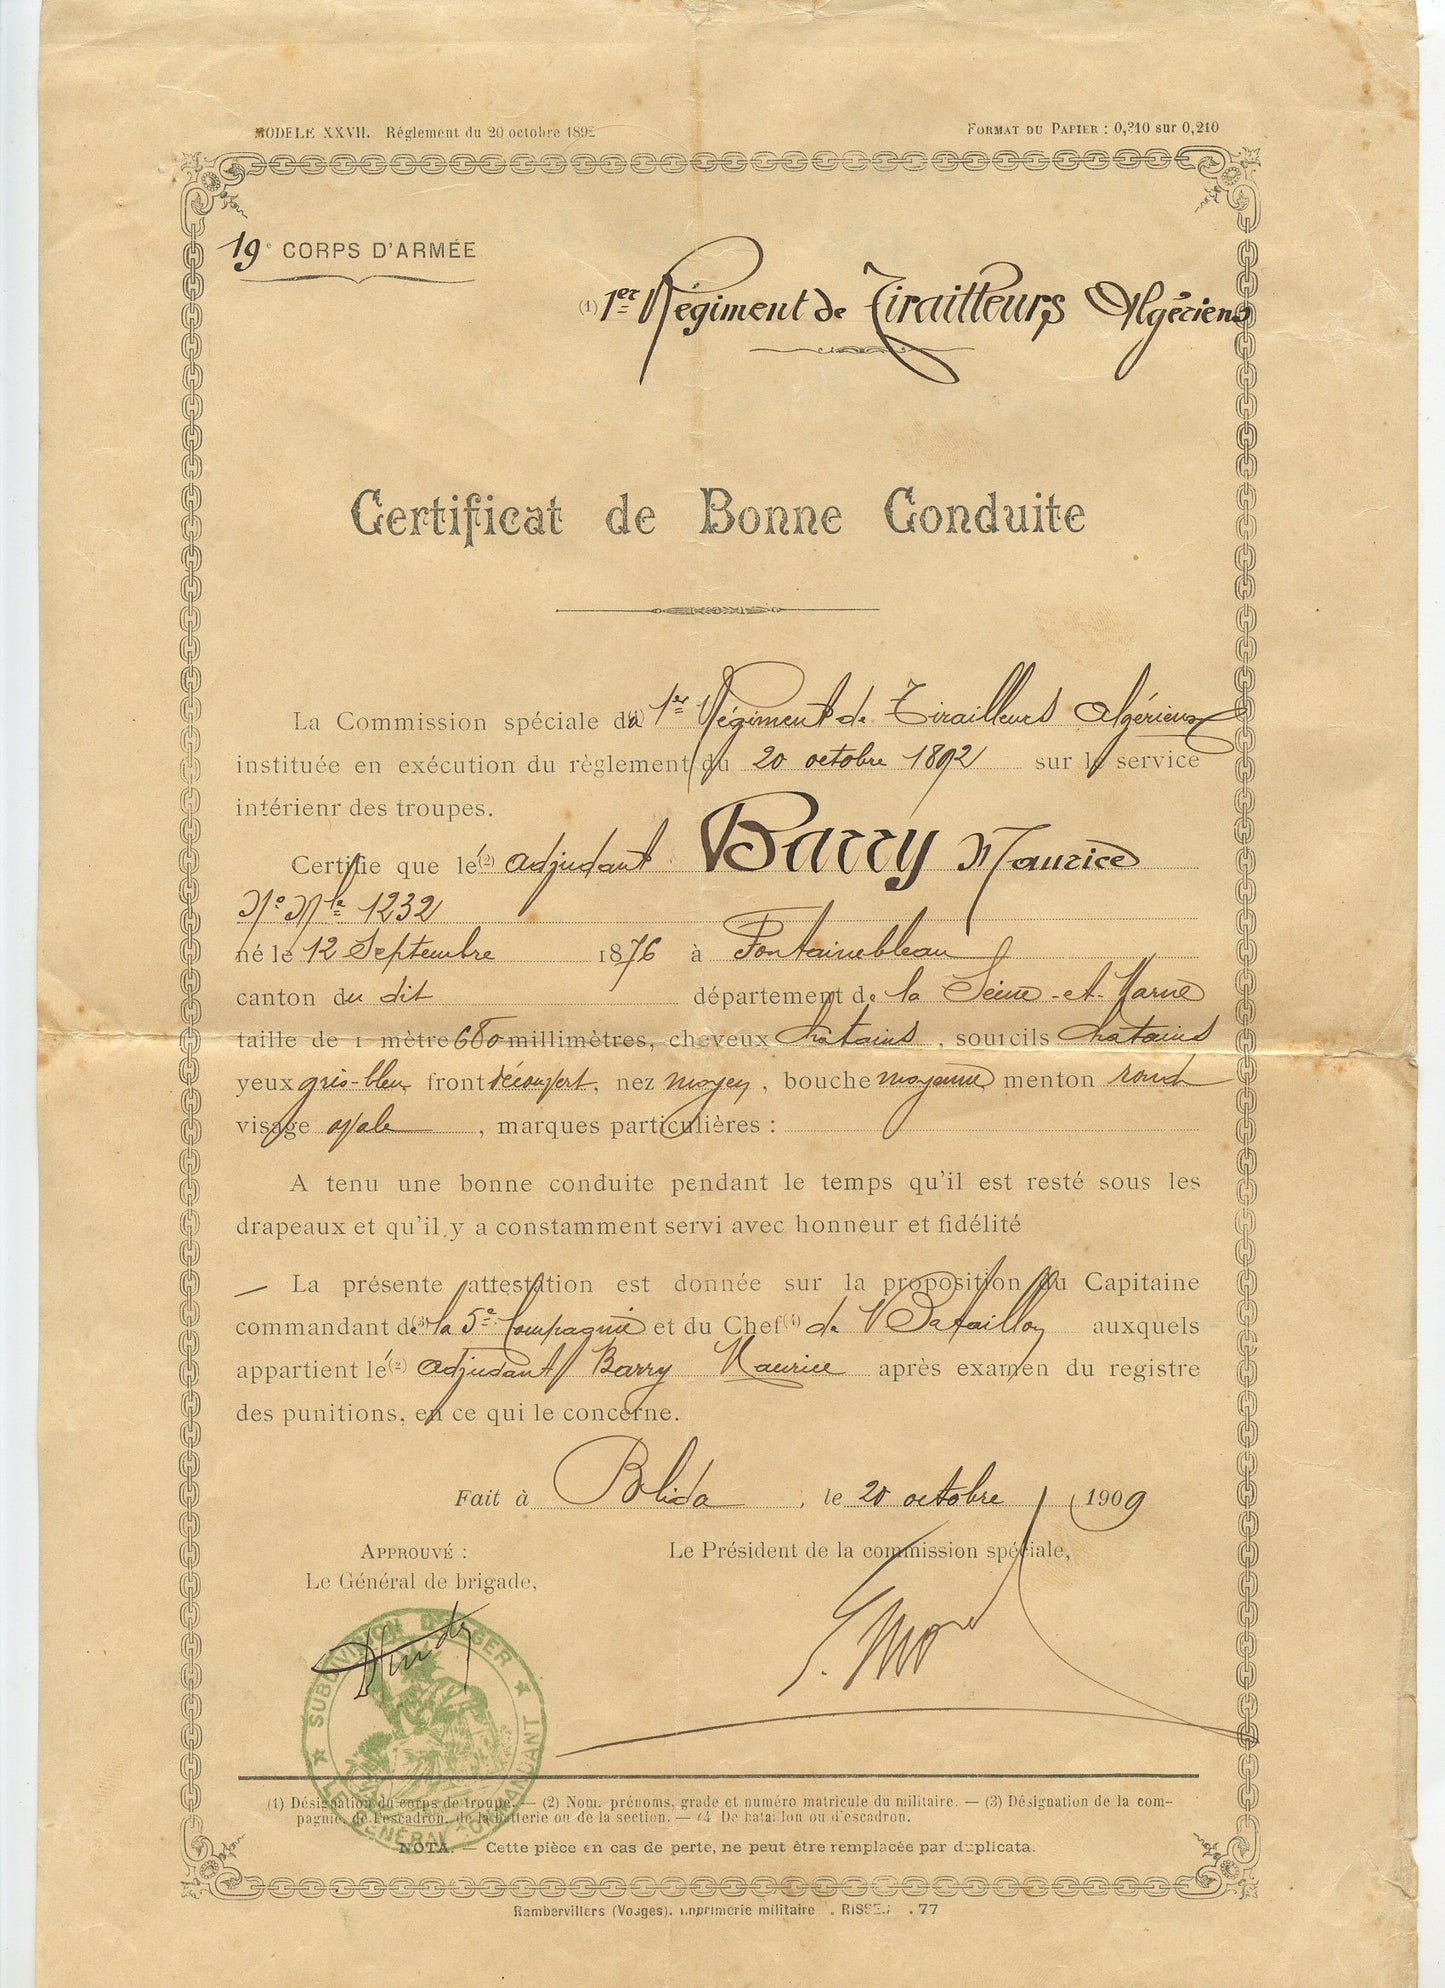 MODELE XXVII. Réglement du 20 octobre 1892
FORMAT DU PAPIER : 0,310 sur 0,210
19e CORPS D'ARMÉE
(1) 1er Régiment de Tirailleurs Algériens
Certificat de Bonne Conduite
La Commission spéciale du (1) 1er Régiment de Tirailleurs Algériens
instituée en exécution du règlement du 20 octobre 1892 sur le service
intérienr des troupes.
Certifie que le (2) adjudant Barry Maurice
No Mle 1232
né le 12 Septembre 1876 à Fontainebleau
canton du dit département de la Seine-et-Marne
taille de 1 mètre 680 millimètres, cheveux chatains, sourcils chatains
yeux gris-bleu, front découvert, nez moyen, bouche moyenne menton rond
visage ovale, marques particulières :
A tenu une bonne conduite pendant le temps qu'il est resté sous les
drapeaux et qu'il y a constamment servi avec honneur et fidélité
— La présente attestation est donnée sur la proposition du Capitaine
commandant de (3) la 5e Compagnie et du Chef (4) de Bataillon auxquels
appartient le (2) adjudant Barry Maurice après examen du registre
des punitions, en ce qui le concerne.
Fait à Blida, le 20 octobre 1909
APPROUVÉ :
Le Président de la commission spéciale,
Le Général de brigade,
SUBDIVISION D'ALGER
LE GÉNÉRAL COMMANDANT
(1) Désignation du corps de troupe. — (2) Nom. prénoms, grade et numéro matricule du militaire. — (3) Désignation de la com-
pagnie, de l'escadron, de la batterie ou de la section. — (4 De bataillon ou d'escadron.
NOTA. — Cette pièce en cas de perte, ne peut être remplacée par duplicata.
Rambervillers (Vosges). Imprimerie militaire . 77